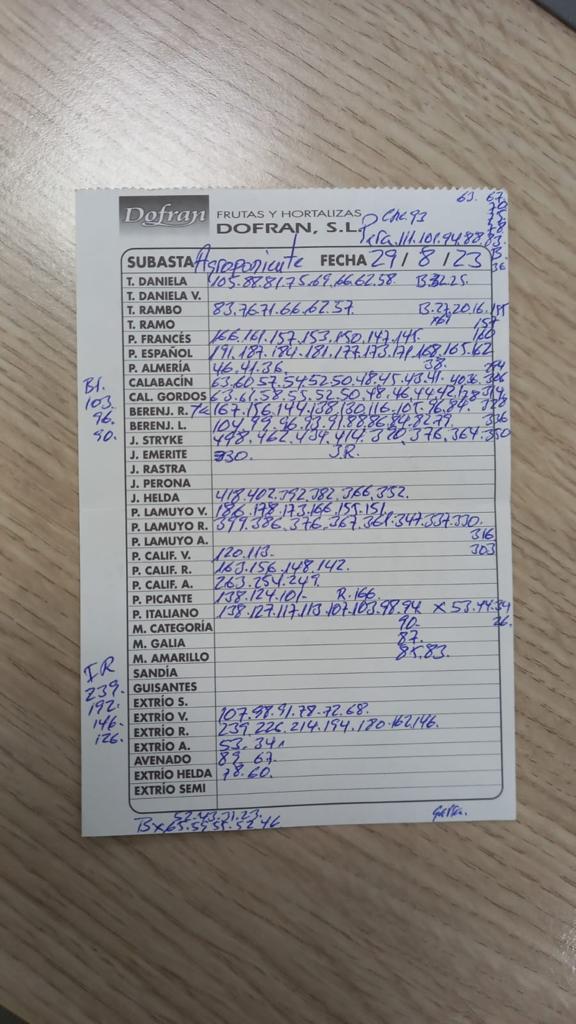 63. 67
Dofran FRUTAS Y HORTALIZAS
DOFRAN, S.L.
Pera. 111.101.94.88.83.
SUBASTA Agroponiente FECHA 29/8/23
B.
36
T. DANIELA 105.88.81.75.69.66.62.58.
T. DANIELA V.
T. RAMBO 83.76.71.66.62.57. B.27.20.16.
T. RAMO 157
P. FRANCÉS 166.161.157.153.150.147.145. 160
P. ESPAÑOL 191.187.184.181.177.173.171.168.165.62
P. ALMERÍA 46.41.36. 38.
CALABACÍN 63.60.57.54.52.50.48.45.43.41. 40.36.
CAL. GORDOS 63.61.58.55.52.50.48.46.44.42.
BERENJ. R. 167.156.144.138.130.116.105.96.84.
BERENJ. L. 104.99.96.93.91.88.86.84.82.79. 336
J. STRYKE 498.462.434.414.390.376.364.350
J. EMERITE 330. J.R.
J. RASTRA
J. PERONA
J. HELDA 418.402.392.382.366.352.
P. LAMUYO V. 186.178.173.166.155.151.
P. LAMUYO R. 399.386.376.367.361.347.337.330.
P. LAMUYO A. 316
P. CALIF. V. 120.113. 303
P. CALIF. R. 163.156.148.142.
P. CALIF. A. 263.254.249.
P. PICANTE 138.124.101. R.166.
P. ITALIANO 138.127.117.113.107.103.98.94 X 53.44.34
M. CATEGORÍA 90. 26.
M. GALIA 87.
M. AMARILLO 85.83.
SANDÍA
GUISANTES
EXTRÍO S.
EXTRÍO V. 107.98.91.78.72.68.
EXTRÍO R. 239.226.214.194.180.162.146.
EXTRÍO A. 53.34.
AVENADO 89 67.
EXTRÍO HELDA 78.60.
EXTRÍO SEMI
Bl.
103.
96.
90.
IR
239.
192.
146.
126.